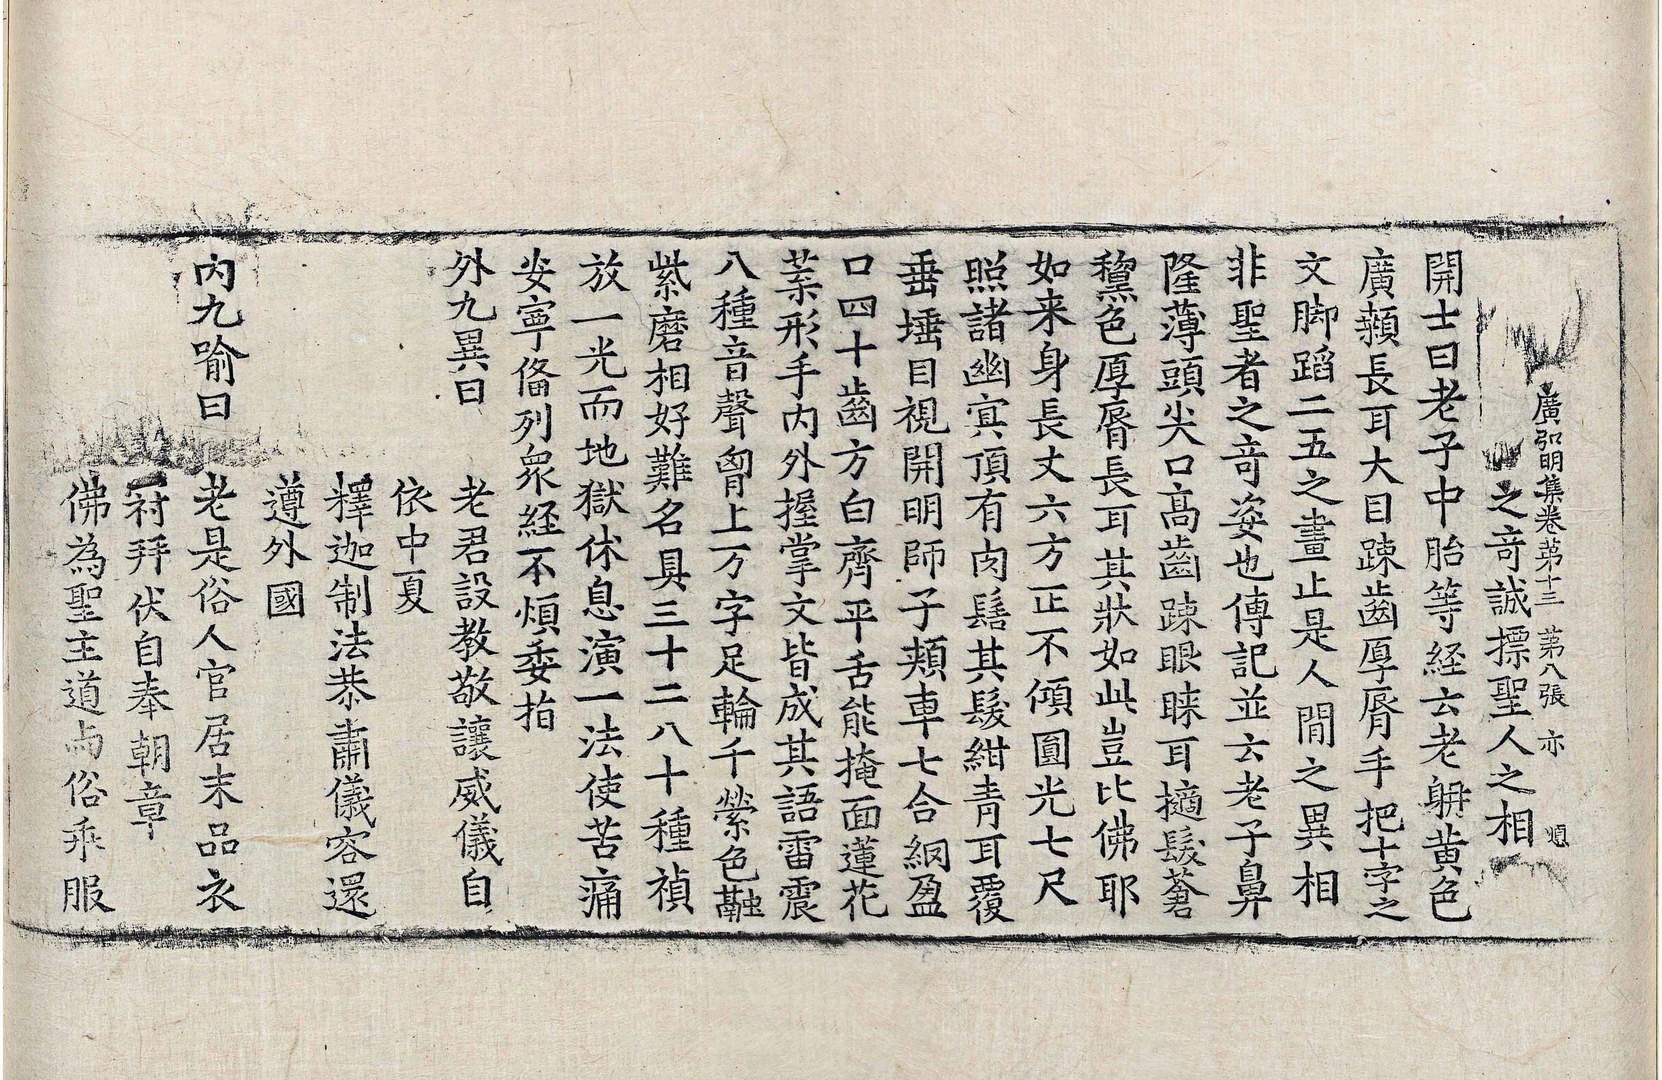 廣弘明集卷第十三 第八張 亦 順
之奇誠摽聖人之相
開士曰老子中胎等経云老聃黃色
廣顙長耳大目踈齒厚脣手把十字之
文脚蹈二五之畫止是人間之異相
非聖者之竒姿也傳記並云老子鼻
隆薄頭尖口高齒踈眼睞耳擿髮蒼
黧色厚脣長耳其狀如此豈比佛耶
如来身長丈六方正不傾圓光七尺
照諸幽㝠頂有肉髻其髮紺青耳覆
垂埵目視開明師子頰車七合網盈
口四十齒方白齊平舌能掩面蓮花
葉形手内外握掌文皆成其語雷震
八種音聲胷上万字足輪千縈色融
紫磨相好難名具三十二八十種禎
放一光而地獄休息演一法使苦痛
安寧俻列衆経不煩委指
外九異曰 老君設教敬讓威儀自
依中夏
釋迦制法恭肅儀容還
遵外國
内九喻曰 老是俗人官居末品衣
冠拜伏自奉朝章
佛為聖主道与俗乖服